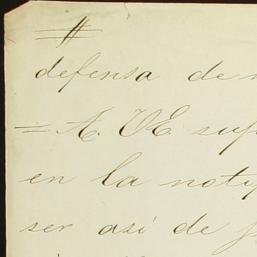 defensa de
= A. V.E. sup
en la notif
ser así de